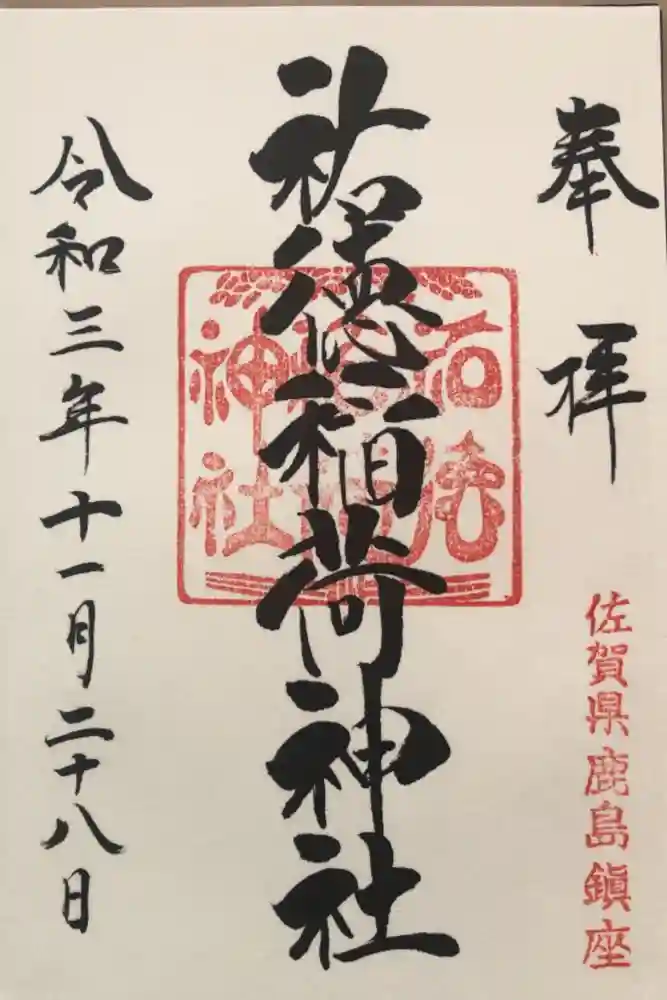 奉拝
佐賀県鹿島鎮座
祐徳稲荷神社
祐徳稲荷神社
令和三年十一月二十八日